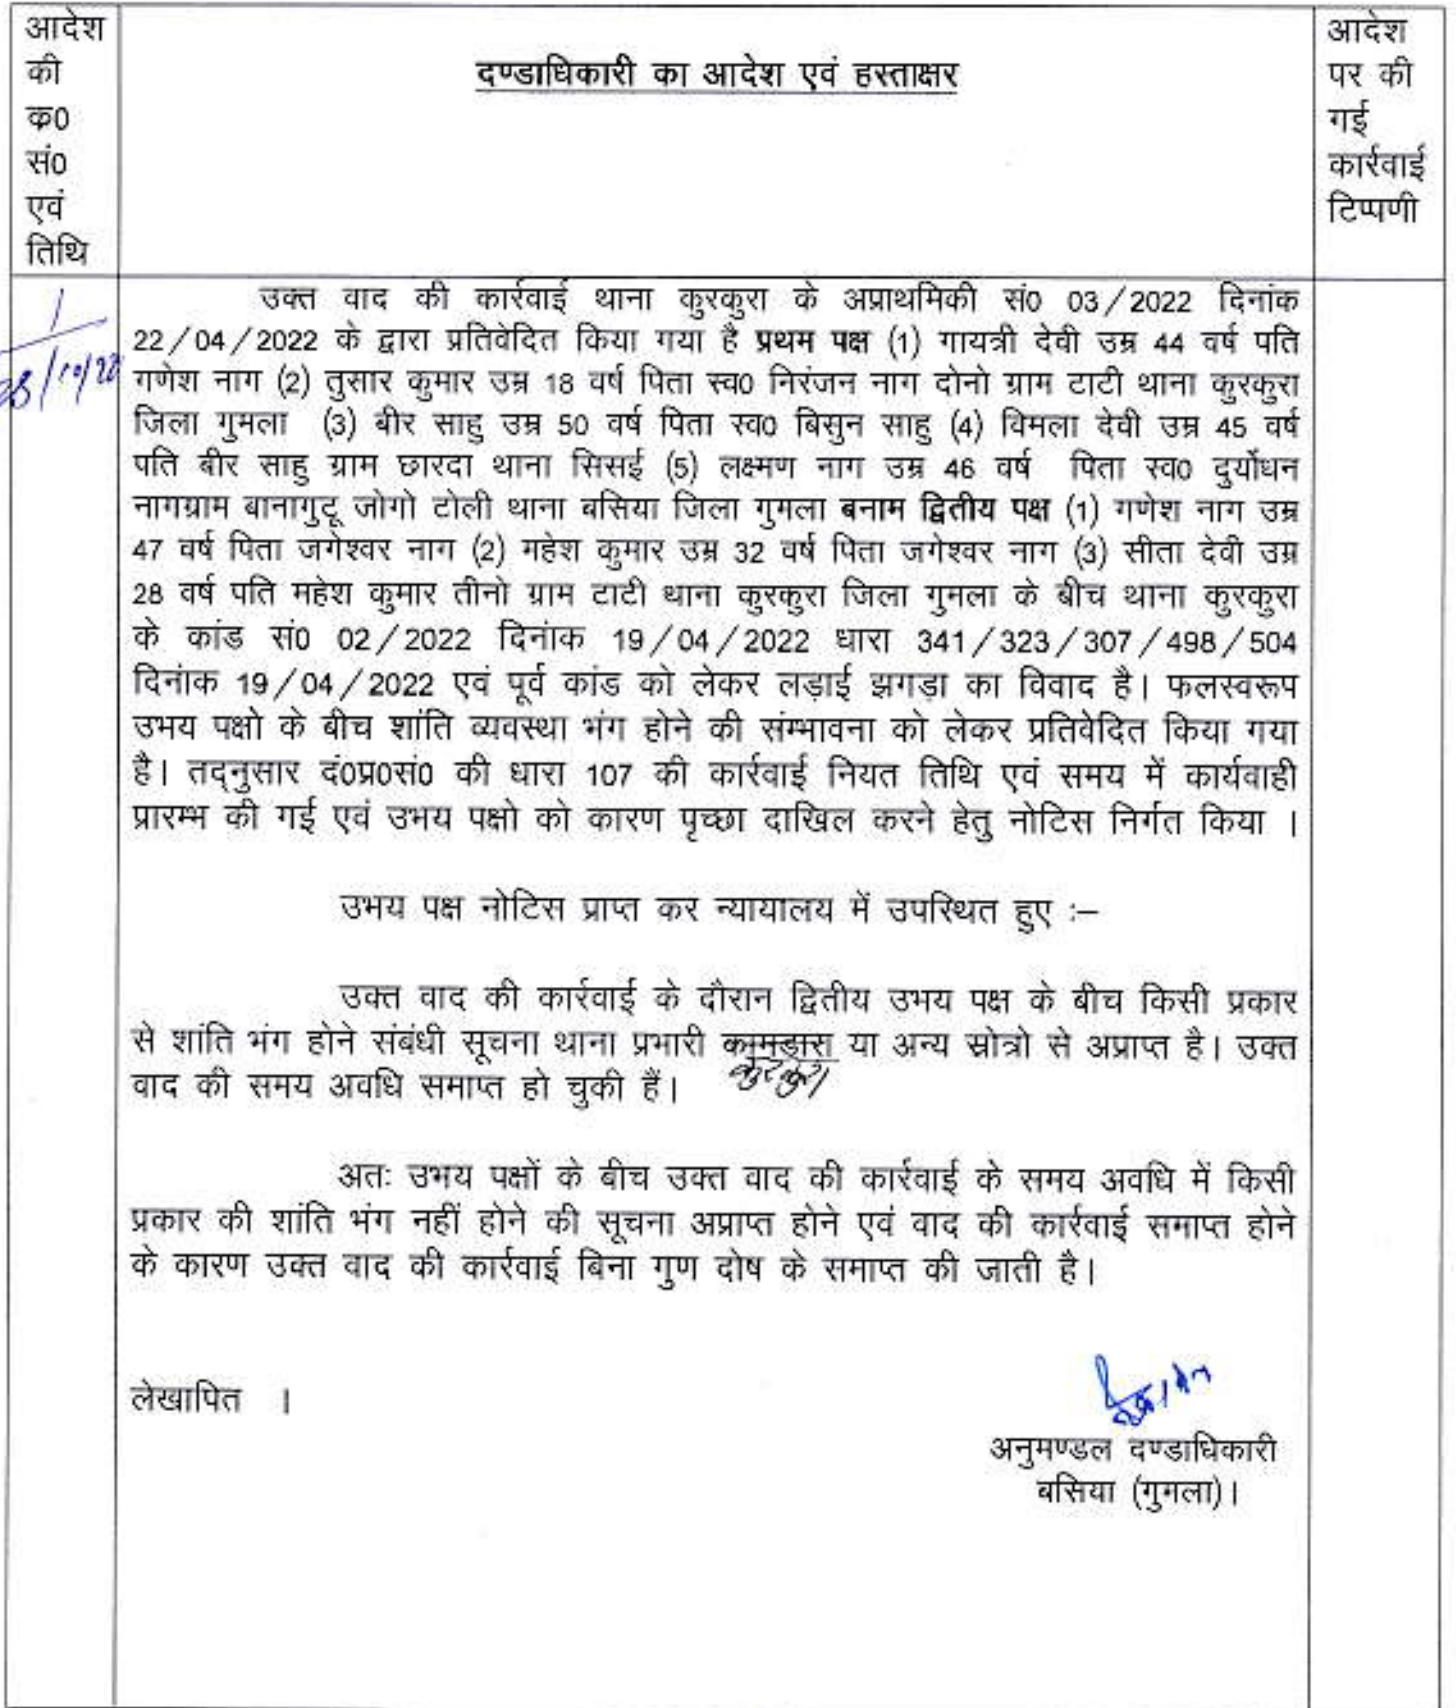 आदेश
की
क्र0
सं0
एवं
तिथि
दण्डाधिकारी का आदेश एवं हस्ताक्षर
आदेश
पर की
गई
कार्रवाई
टिप्पणी
28/10/22
उक्त वाद की कार्रवाई थाना कुरकुरा के अप्राथमिकी सं0 03/2022 दिनांक
22/04/2022 के द्वारा प्रतिवेदित किया गया है प्रथम पक्ष (1) गायत्री देवी उम्र 44 वर्ष पति
गणेश नाग (2) तुसार कुमार उम्र 18 वर्ष पिता स्व0 निरंजन नाग दोनो ग्राम टाटी थाना कुरकुरा
जिला गुमला (3) बीर साहु उम्र 50 वर्ष पिता स्व0 बिसुन साहु (4) विमला देवी उम्र 45 वर्ष
पति बीर साहु ग्राम छारदा थाना सिसई (5) लक्ष्मण नाग उम्र 46 वर्ष पिता स्व0 दुर्योधन
नागग्राम बानागुटू जोगो टोली थाना बसिया जिला गुमला बनाम द्वितीय पक्ष (1) गणेश नाग उम्र
47 वर्ष पिता जगेश्वर नाग (2) महेश कुमार उम्र 32 वर्ष पिता जगेश्वर नाग (3) सीता देवी उम्र
28 वर्ष पति महेश कुमार तीनो ग्राम टाटी थाना कुरकुरा जिला गुमला के बीच थाना कुरकुरा
के कांड सं0 02/2022 दिनांक 19/04/2022 धारा 341/323/307/498/504
दिनांक 19/04/2022 एवं पूर्व कांड को लेकर लड़ाई झगड़ा का विवाद है। फलस्वरूप
उभय पक्षो के बीच शांति व्यवस्था भंग होने की संम्भावना को लेकर प्रतिवेदित किया गया
है। तद्नुसार दं0प्र0सं0 की धारा 107 की कार्रवाई नियत तिथि एवं समय में कार्यवाही
प्रारम्भ की गई एवं उभय पक्षो को कारण पृच्छा दाखिल करने हेतु नोटिस निर्गत किया ।
उभय पक्ष नोटिस प्राप्त कर न्यायालय में उपस्थित हुए :–
उक्त वाद की कार्रवाई के दौरान द्वितीय उभय पक्ष के बीच किसी प्रकार
से शांति भंग होने संबंधी सूचना थाना प्रभारी कामडारा या अन्य स्रोत्रो से अप्राप्त है। उक्त
वाद की समय अवधि समाप्त हो चुकी हैं। कुरकुरा
अतः उभय पक्षों के बीच उक्त वाद की कार्रवाई के समय अवधि में किसी
प्रकार की शांति भंग नहीं होने की सूचना अप्राप्त होने एवं वाद की कार्रवाई समाप्त होने
के कारण उक्त वाद की कार्रवाई बिना गुण दोष के समाप्त की जाती है।
लेखापित ।
अनुमण्डल दण्डाधिकारी
बसिया (गुमला)।